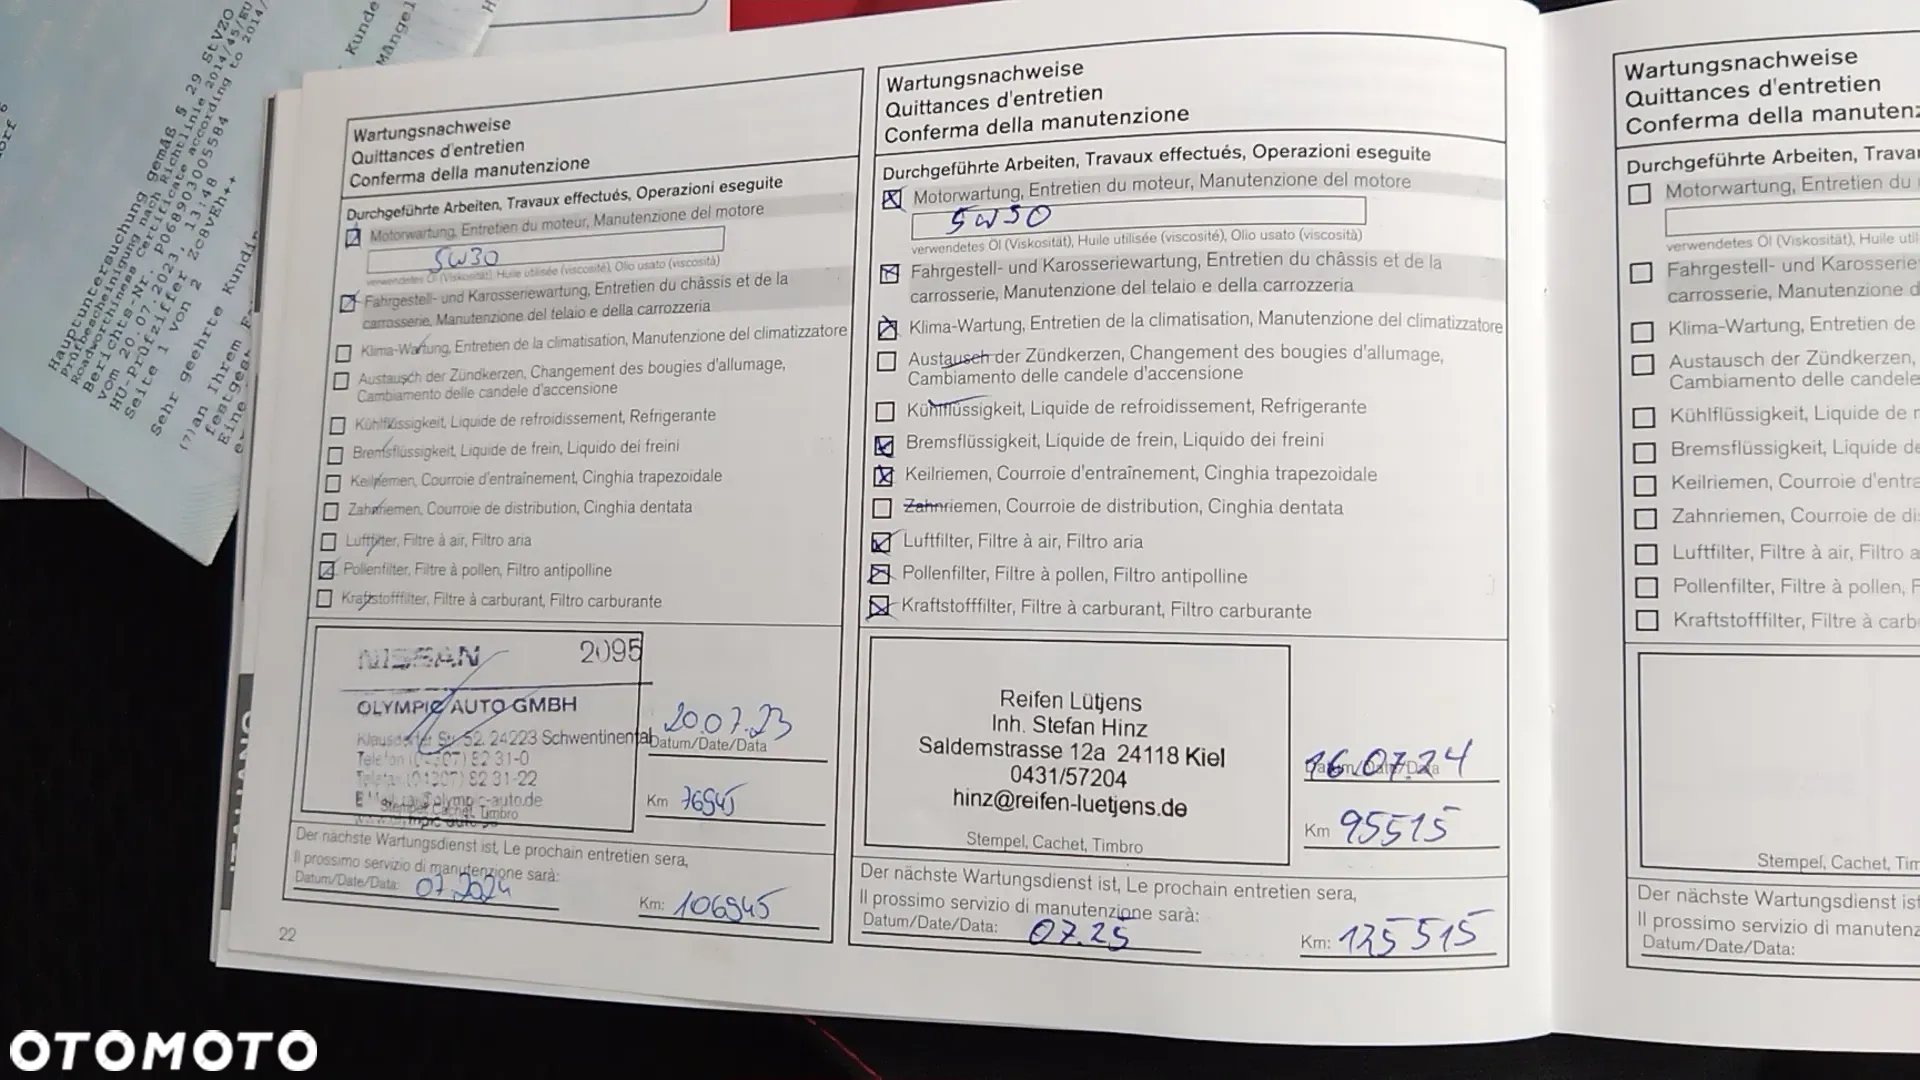 Hauptuntersuchung gemäß § 29 StVZO
Prüfbescheinigung nach Richtlinie 2014/45/EU
Roadworthiness Certificate according to 2014/
Berichts-Nr. P06890303005584
vom 20.07.2023, 13:48
HU-Prüfziffer Zc8vEh++
Seite 1 von 2
Sehr geehrte Kundin
(7) an Ihrem
festges
Eine
Kunde
Mängel
Wartungsnachweise
Quittances d'entretien
Conferma della manutenzione
Durchgeführte Arbeiten, Travaux effectués, Operazioni eseguite
Motorwartung, Entretien du moteur, Manutenzione del motore
5W30
verwendetes Öl (Viskosität), Huile utilisée (viscosité), Olio usato (viscosità)
Fahrgestell- und Karosseriewartung, Entretien du châssis et de la
carrosserie, Manutenzione del telaio e della carrozzeria
Klima-Wartung, Entretien de la climatisation, Manutenzione del climatizzatore
Austausch der Zündkerzen, Changement des bougies d'allumage,
Cambiamento delle candele d'accensione
Kühlflüssigkeit, Liquide de refroidissement, Refrigerante
Bremsflüssigkeit, Liquide de frein, Liquido dei freini
Keilriemen, Courroie d'entraînement, Cinghia trapezoidale
Zahnriemen, Courroie de distribution, Cinghia dentata
Luftfilter, Filtre à air, Filtro aria
Pollenfilter, Filtre à pollen, Filtro antipolline
Kraftstofffilter, Filtre à carburant, Filtro carburante
NISSAN 2095
OLYMPIC AUTO GMBH
Klausdorfer Str. 52, 24223 Schwentinental
Telefon (04307) 82 31-0
Telefax (04307) 82 31-22
Stempel, Cachet, Timbro
20.07.23
Datum/Date/Data
Km 76945
Der nächste Wartungsdienst ist, Le prochain entretien sera,
Il prossimo servizio di manutenzione sarà:
Datum/Date/Data: 07.2024
Km: 106945
22
Wartungsnachweise
Quittances d'entretien
Conferma della manutenzione
Durchgeführte Arbeiten, Travaux effectués, Operazioni eseguite
Motorwartung, Entretien du moteur, Manutenzione del motore
5W30
verwendetes Öl (Viskosität), Huile utilisée (viscosité), Olio usato (viscosità)
Fahrgestell- und Karosseriewartung, Entretien du châssis et de la
carrosserie, Manutenzione del telaio e della carrozzeria
Klima-Wartung, Entretien de la climatisation, Manutenzione del climatizzatore
Austausch der Zündkerzen, Changement des bougies d'allumage,
Cambiamento delle candele d'accensione
Kühlflüssigkeit, Liquide de refroidissement, Refrigerante
Bremsflüssigkeit, Liquide de frein, Liquido dei freini
Keilriemen, Courroie d'entraînement, Cinghia trapezoidale
Zahnriemen, Courroie de distribution, Cinghia dentata
Luftfilter, Filtre à air, Filtro aria
Pollenfilter, Filtre à pollen, Filtro antipolline
Kraftstofffilter, Filtre à carburant, Filtro carburante
Reifen Lütjens
Inh. Stefan Hinz
Saldernstrasse 12a 24118 Kiel
0431/57204
hinz@reifen-luetjens.de
Stempel, Cachet, Timbro
16.07.24
Datum/Date/Data
Km 95515
Der nächste Wartungsdienst ist, Le prochain entretien sera,
Il prossimo servizio di manutenzione sarà:
Datum/Date/Data: 07.25
Km: 125515
Wartungsnachweise
Quittances d'entretien
Conferma della manuten
Durchgeführte Arbeiten, Trava
Motorwartung, Entretien du
verwendetes Öl (Viskosität), Huile util
Fahrgestell- und Karosserie
carrosserie, Manutenzione d
Klima-Wartung, Entretien de
Austausch der Zündkerzen,
Cambiamento delle candele
Kühlflüssigkeit, Liquide de r
Bremsflüssigkeit, Liquide de
Keilriemen, Courroie d'entra
Zahnriemen, Courroie de di
Luftfilter, Filtre à air, Filtro a
Pollenfilter, Filtre à pollen, F
Kraftstofffilter, Filtre à carb
Stempel, Cachet, Tim
Der nächste Wartungsdienst ist
Il prossimo servizio di manuten
Datum/Date/Data:
OTOMOTO